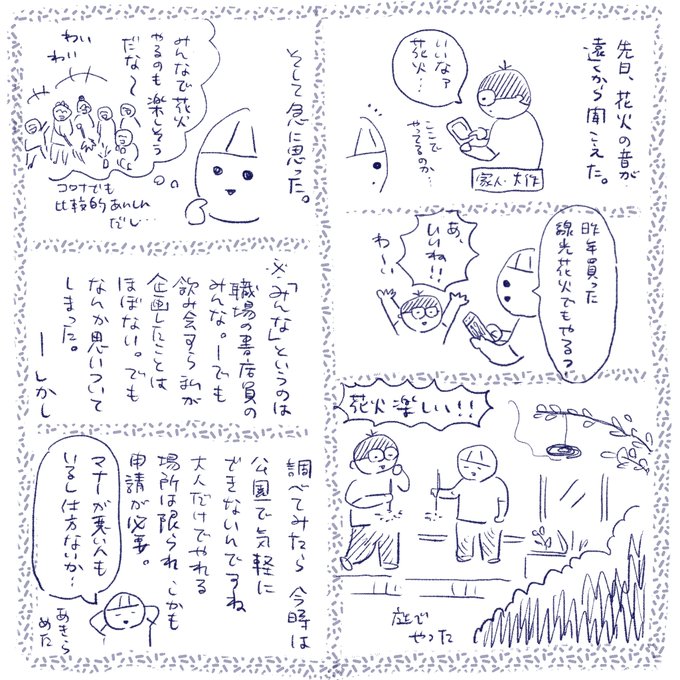 先日、花火の音が
遠くから聞こえた。
いいなァ
花火…
ここで
やってるのか…
家人・大作
昨年買った
線光花火でもやる？
あ、
いいね!!
わーい
花火楽しい!!
庭で
やった
そして急に思った。
みんなで花火
やるのも楽しそう
だな〜
わい
わい
コロナでも
比較的あんしん
だし…
※「みんな」というのは
職場の書店員の
みんな。ーでも
飲み会すら私が
企画したことは
ほぼない。でも
なんか思いついて
しまった。
ーしかし
調べてみたら今時は
公園で気軽に
できないんですね
大人だけでやれる
場所は限られ、しかも
申請が必要。
マナーが悪い人も
いるし仕方ないか…
あきら
めた